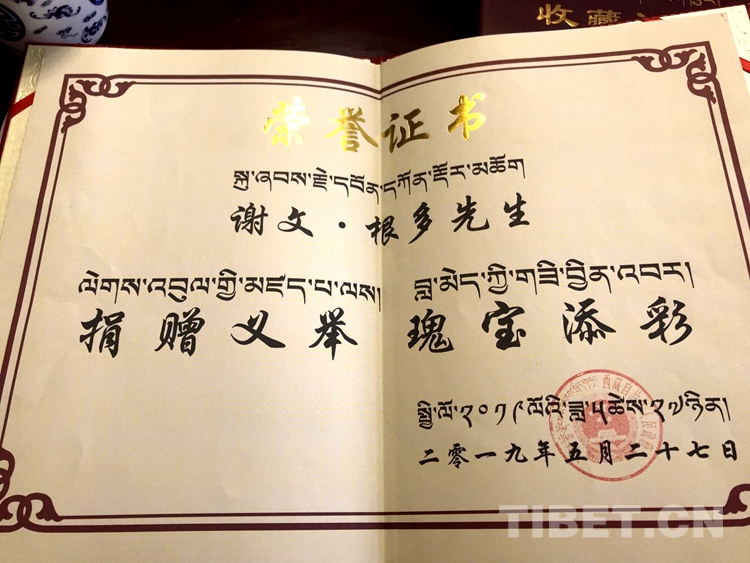 收藏
荣誉证书
སྐུ་ཞབས་རྗེ་དཔོན་དཀོན་དོར་མཆོག
谢文·根多先生
ལེགས་འབུལ་གྱི་མཛད་པ་ལས།
བླ་མེད་ཀྱི་གཟི་བྱིན་འབར།
捐赠义举 瑰宝添彩
སྤྱི་ལོ་༢༠༡༩ལོའི་ཟླ་༥ཚེས་༢༧ཉིན།
二零一九年五月二十七日
TIBET.CN